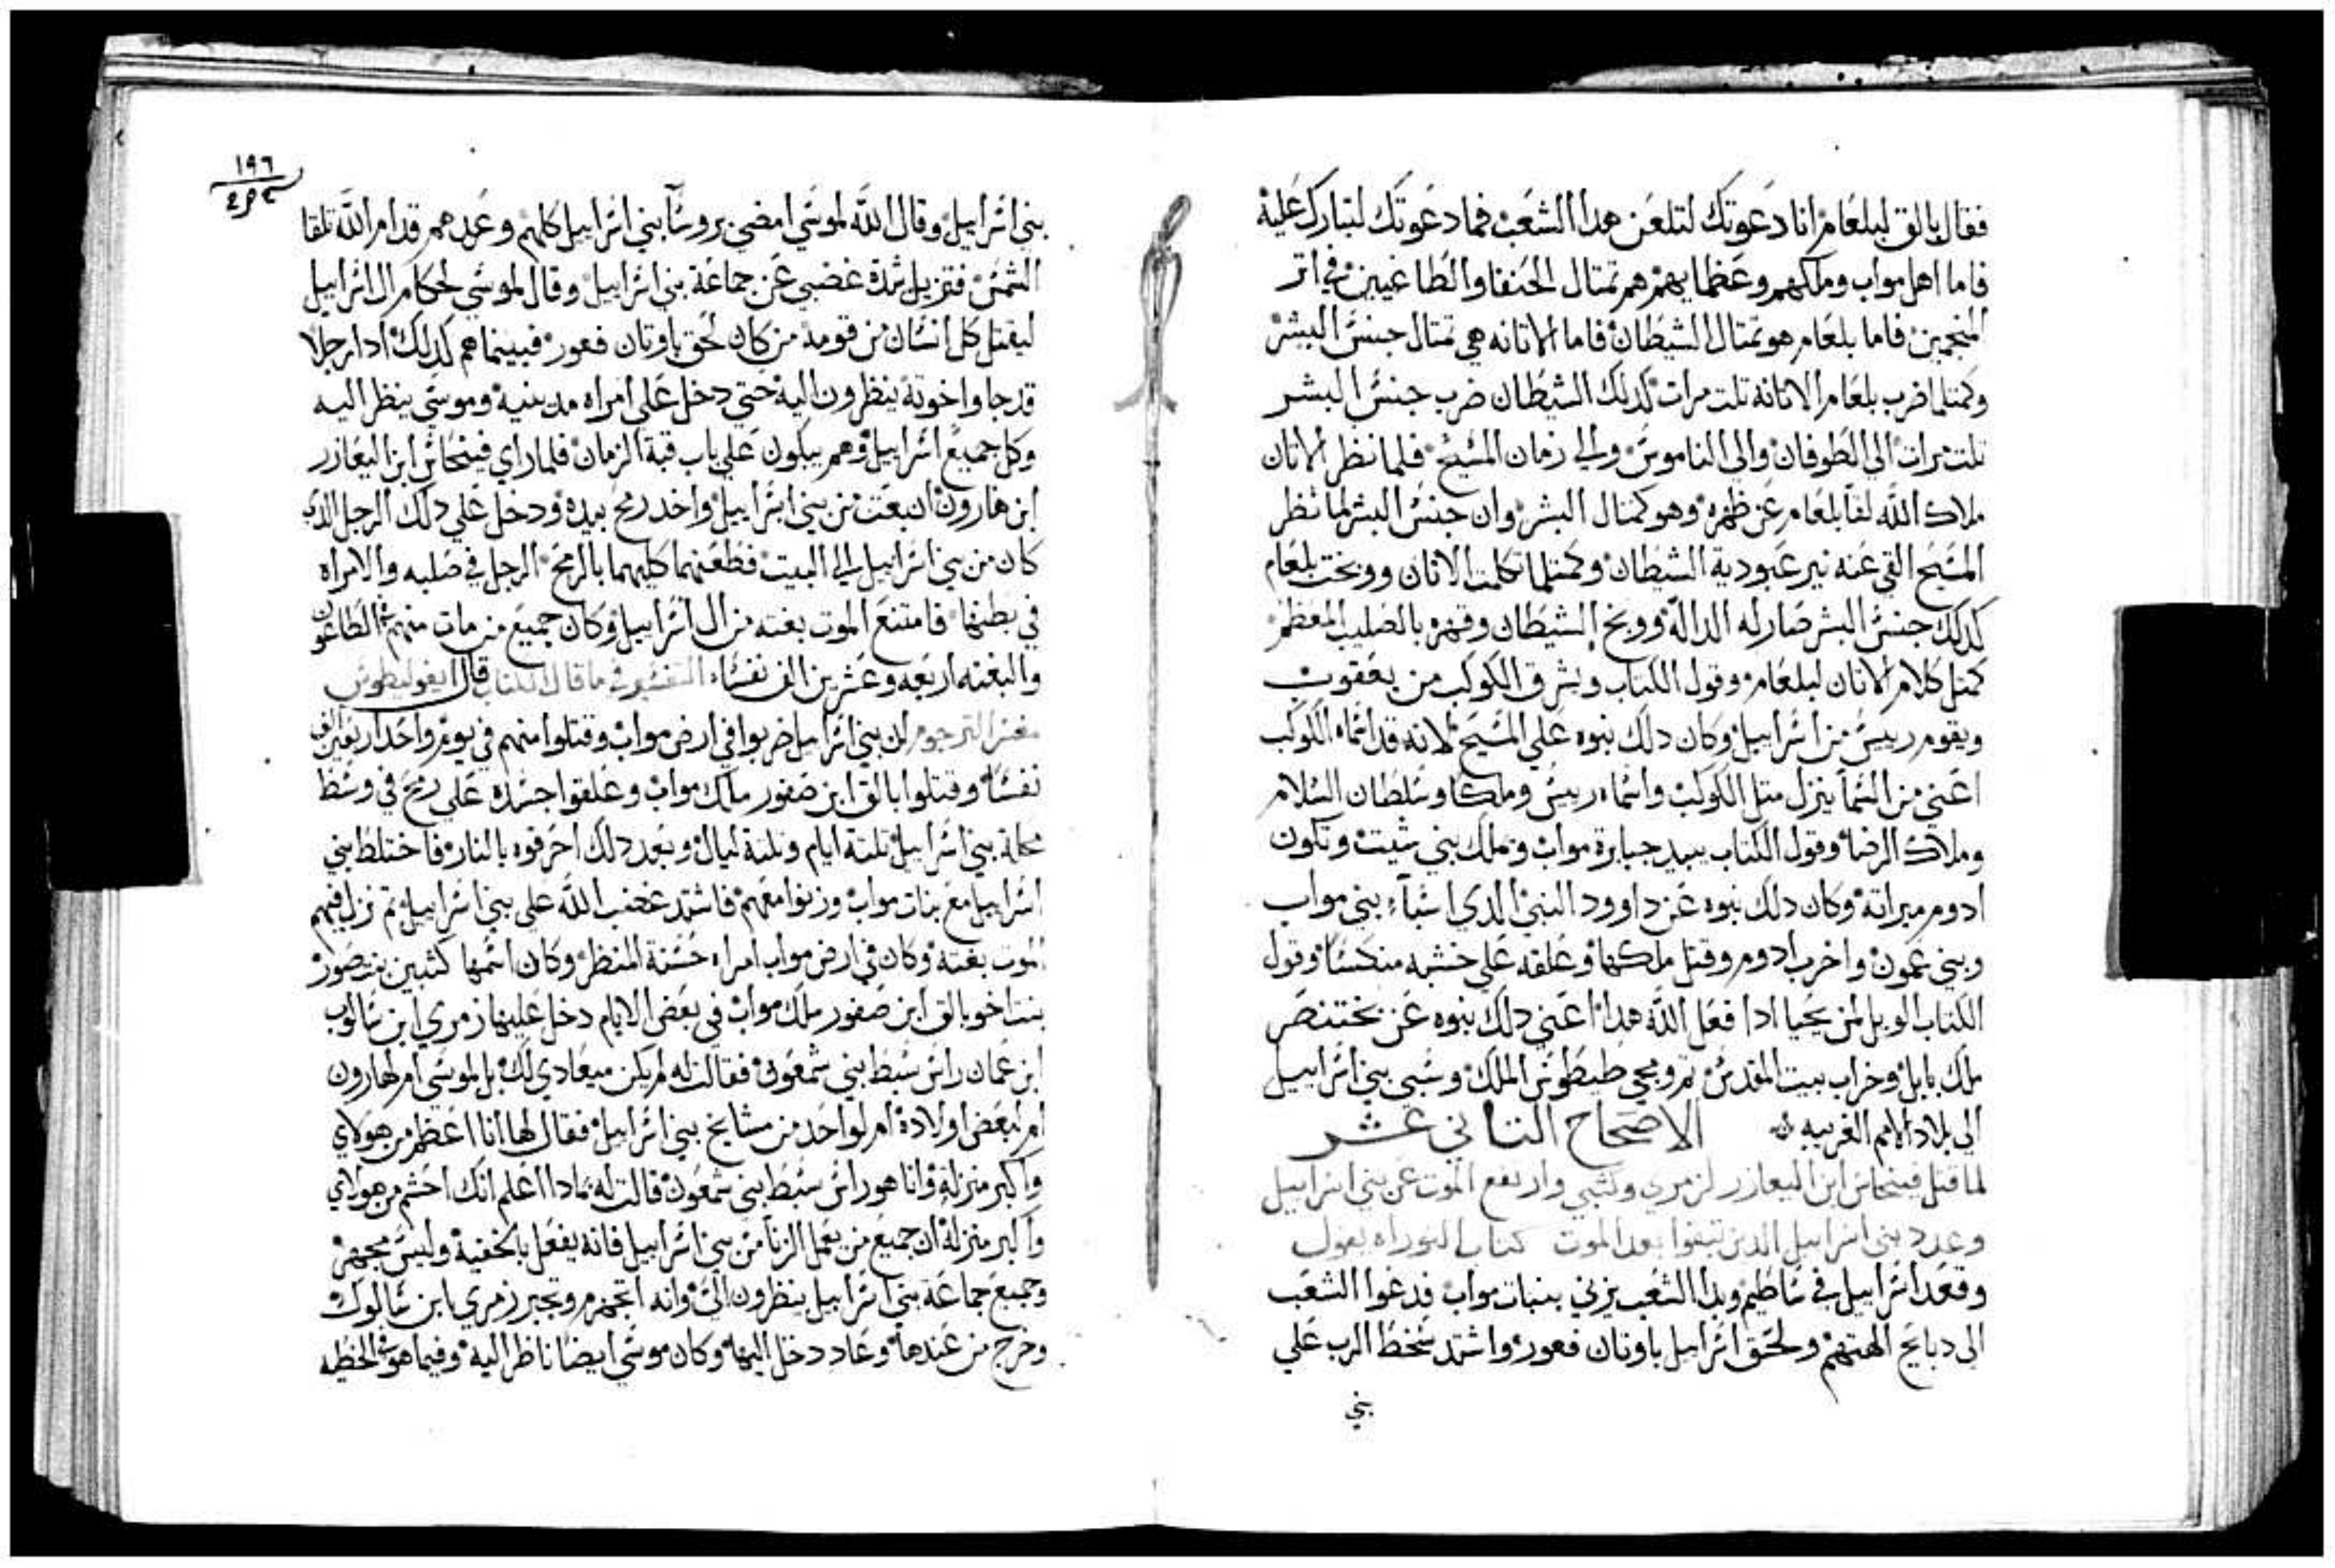 فقال بالق لبلعام انا دعوتك لتلعن هدا الشعب فما دعوتك لتبارك عليه
فاما اهل مواب وملكهم وعظمايهم هم تمتال الحنفا والطاغيين في اتر
المنجمين فاما بلعام هو تمتال الشيطان فاما الاتانه هي تمتال جنس البشر
وكمتلما ضرب بلعام الاتانه تلت مرات كدلك الشيطان ضرب جنس البشر
تلت مرات الي الطوفان والي الناموس والي زمان المسيح فلما نظر الاتان
ملاك الله لقا بلعام عن ظهره وهو كمتال البشر وان جنس البشر لما نظر
المسيح القي عنه نير عبودية الشيطان وكمتلما تكلمت الاتان ووبخت بلعام
كدلك جنس البشر صار له الدالة ووبخ الشيطان وقهره بالصليب المعظم
كمتل كلام الاتان لبلعام وقول الكتاب ويشرق الكوكب من يعقوب
ويقوم رييس من اسراييل وكان دلك نبوه علي المسيح لانه قد اسماه الكوكب
اعني من السما ينزل متل الكوكب واسماه رييس وملكا وسلطان السلام
وملاك الرضا وقول الكتاب يبيد جبابرة مواب ويملك بني شيت وتكون
ادوم ميراتة وكان دلك نبوه عن داوود النبي الدي اسبا بني مواب
وبني عمون واخرب ادوم وقتل ملكها وعلقه علي خشبه منكسا وقول
الكتاب الويل لمن يحيا ادا فعل الله هدا اعني دلك نبوه عن بختنصر
ملك بابل وخراب بيت المقدس تم ومجي طيطوس الملك وسبي بني اسراييل
الي بلاد الامم الغريبه الاصحاح التاني عشر
لما قتل فينحاس ابن اليعازر لزمري وكتبي وارتفع الموت عن بني اسراييل
وعدد بني اسراييل الدين تبقوا بعد الموت كتاب التوراه يقول
وقعد اسراييل في ساطيم وبدا الشعب يزني ببنات مواب فدعوا الشعب
الي دبايح الهتهم ولحق اسراييل باوتان فعور واشتد سخط الرب علي
بني
١٩٦
بني اسراييل وقال الله لموسي امضي بروسآ بني اسراييل كلهم وعدهم قدام الله تلقا
الشمس فتزيل شدة غضبي عن جماعة بني اسراييل وقال لموسي لحكام ال اسراييل
ليقتل كل انسان من قومه من كان لحق باوتان فعور فبينما هم كدلك ادا رجلا
قد جا واخوتة ينظرون اليه حتي دخل علي امراه مدينيه وموسي ينظر اليه
وكل جميع اسراييل وهم يبكون علي باب قبة الزمان فلما راي فينحاس ابن اليعازر
ابن هارون انبعت من بني اسراييل واخد رمح بيده ودخل علي دلك الرجل الدي
كان من بني اسراييل الي البيت فطعنهما كليهما بالرمح الرجل في صلبه والامراه
في بطنها فامتنع الموت بغته من ال اسراييل وكان جميع من مات منهم الطاعون
والبغته اربعه وعشرين الف نفسا التفسير في ما قال الكتاب قال ايفوليطوس
مفسر الترجوم ان بني اسراييل ضربوا في ارض مواب وقتلوا منهم في يوم واحد اربعين الف
نفسا وقتلوا بالق ابن صفور ملك مواب وعلقوا جسده علي رمح في وسط
محلة بني اسراييل تلتة ايام وتلتة ليال وبعد دلك احرقوه بالنار فاختلط بني
اسراييل مع بنات مواب وزنوا معهم فاشتد غضب الله علي بني اسراييل تم نزل فيهم
الموت بغته وكان في ارض مواب امراه حسنة المنظر وكان اسمها كتبين بنت صور
بنت اخو بالق ابن صفور ملك مواب في بعض الايام دخل عليها زمري ابن سالوك
ابن عمان راس سبط بني شمعون فقالت له لم يكن ميعادي لك بل لموسي ام لهارون
ام لبعض اولاده ام لواحد من مشايخ بني اسراييل فقال لها انا اعظم من هولاي
واكبر منزله وانا هو راس سبط بني شمعون قالت له بمادا اعلم انك احشم من هولاي
واكبر منزله ان جميع من يعمل الزنا من بني اسراييل فانه يفعل بالخفية وليس مجهر
وجميع جماعة بني اسراييل ينظرون الي وانه اتجهزم وتجبر زمري ابن سالوك
وخرج من عندها وعاد دخل اليها وكان موسي ايضا ناظر اليه وفيما هو الخطيه